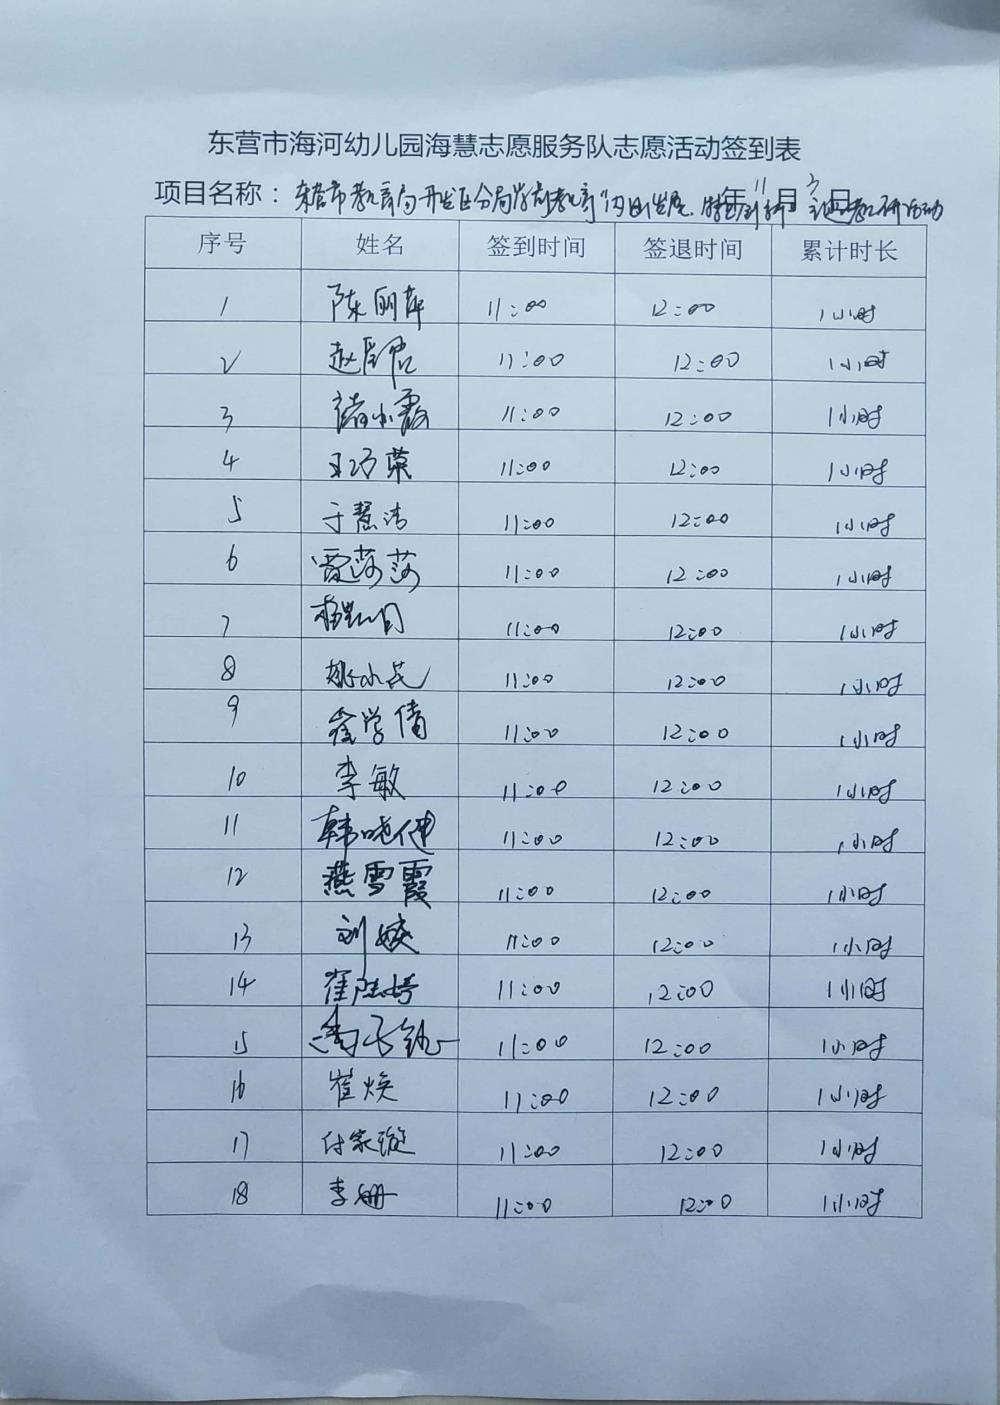 东营市海河幼儿园海慧志愿服务队志愿活动签到表
项目名称：东营市教育局开发区分局学前教育"内因发展 年11月3日 主题教研活动
序号 姓名 签到时间 签退时间 累计时长
1 陈丽萍 11:00 12:00 1小时
2 赵 11:00 12:00 1小时
3 褚小霞 11:00 12:00 1小时
4 王巧荣 11:00 12:00 1小时
5 于慧洁 11:00 12:00 1小时
6 雷莎莎 11:00 12:00 1小时
7 11:00 12:00 1小时
8 11:00 12:00 1小时
9 学倩 11:00 12:00 1小时
10 李敏 11:00 12:00 1小时
11 韩晓健 11:00 12:00 1小时
12 燕雪霞 11:00 12:00 1小时
13 刘姣 11:00 12:00 1小时
14 崔陆婷 11:00 12:00 1小时
15 11:00 12:00 1小时
16 崔焕 11:00 12:00 1小时
17 付家璇 11:00 12:00 1小时
18 李姗 11:00 12:00 1小时